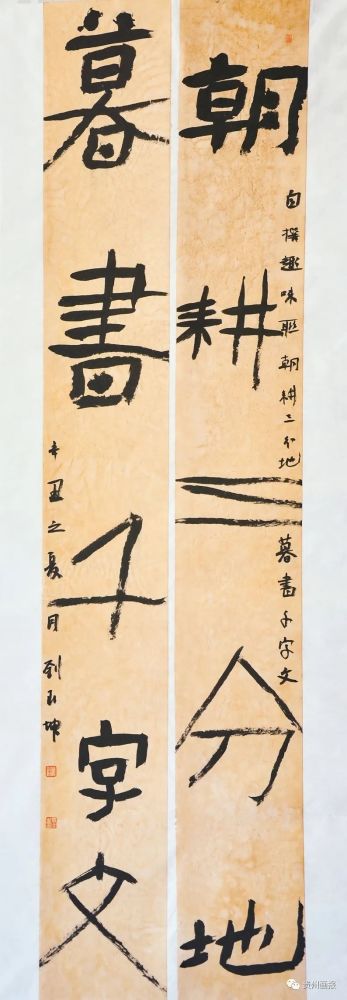 朝耕三分地
自撰趣味联朝耕三分地
暮書千字文
暮書千字文
辛丑之夏月 刘玉坤
贵州画报